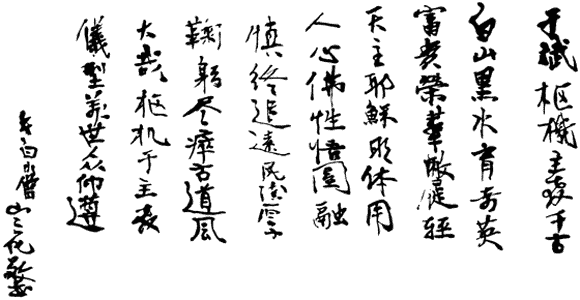 于斌枢機主教千古
白山黑水育奇英
富贵榮華敝屣輕
天主耶穌明体用
人心佛性悟圓融
慎終追遠民德厚
鞠躬尽瘁古道風
大哉枢机于主教
儀型萬世众仰遵
白